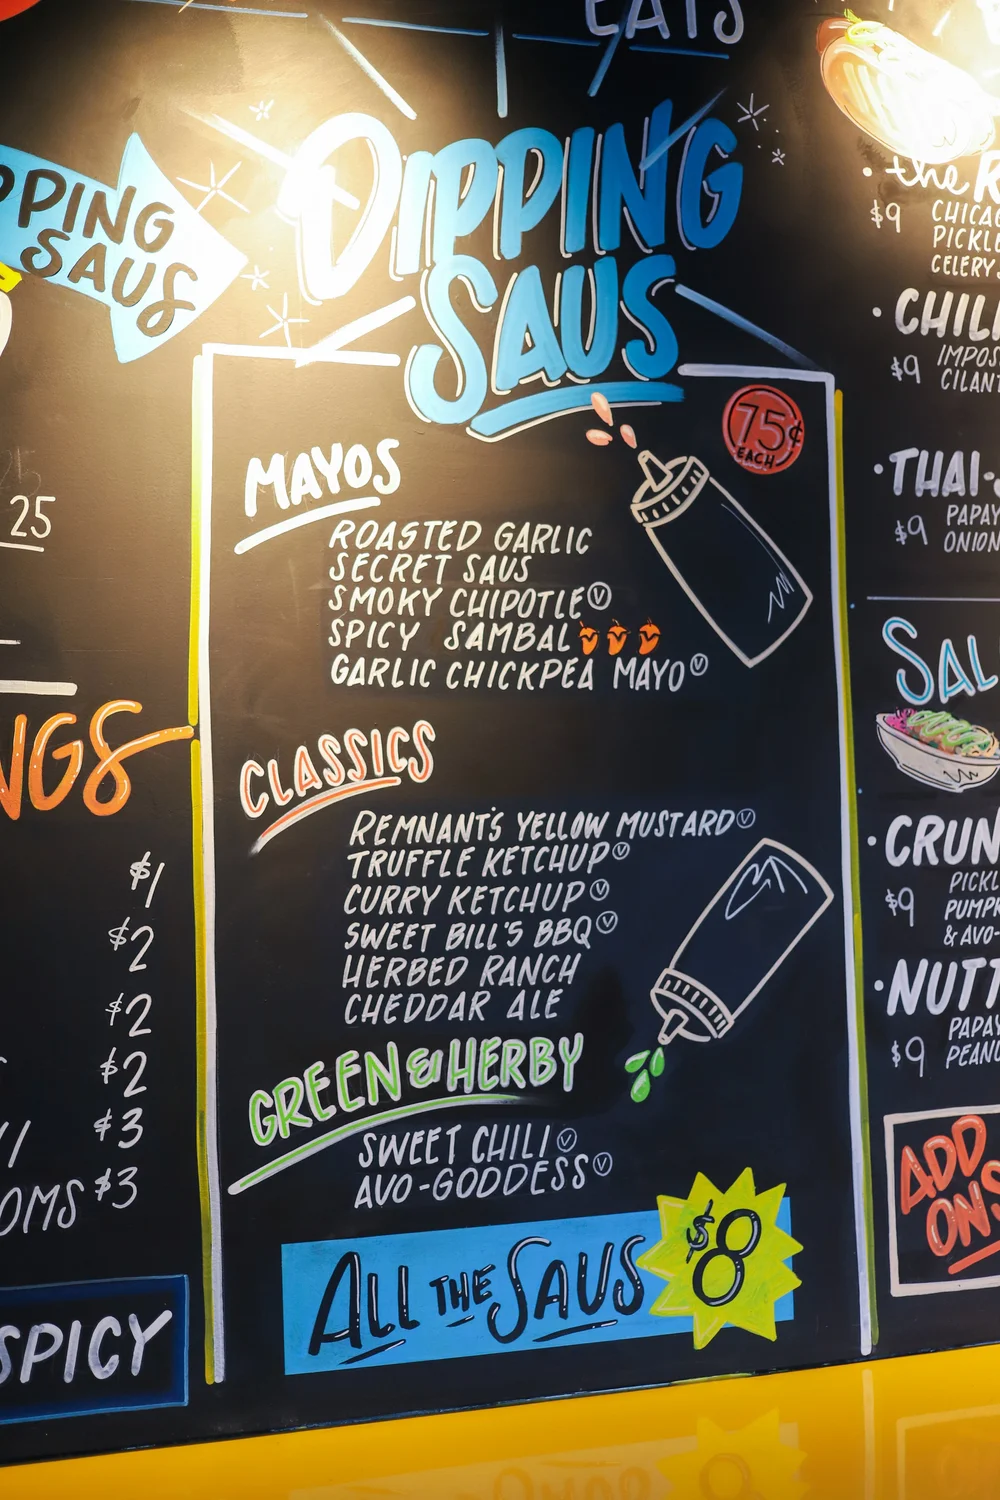 EATS
DIPPING
SAUS
PPING
SAUS
75¢
EACH
MAYOS
ROASTED GARLIC
SECRET SAUS
SMOKY CHIPOTLE Ⓥ
SPICY SAMBAL
GARLIC CHICKPEA MAYO Ⓥ
CLASSICS
REMNANT'S YELLOW MUSTARD Ⓥ
TRUFFLE KETCHUP Ⓥ
CURRY KETCHUP Ⓥ
SWEET BILL'S BBQ Ⓥ
HERBED RANCH
CHEDDAR ALE
GREEN & HERBY
SWEET CHILI Ⓥ
AVO-GODDESS Ⓥ
ALL THE SAUS $8
25
NGS
$1
$2
$2
$2
$3
OMS $3
SPICY
the R
$9 CHICA
PICKLE
CELERY
CHIL
$9 IMPOS
CILANT
THAI-
$9 PAPAY
ONION
SAL
CRUN
$9 PICKL
PUMPK
& AVO-
NUTT
$9 PAPAY
PEANU
ADD
ONS